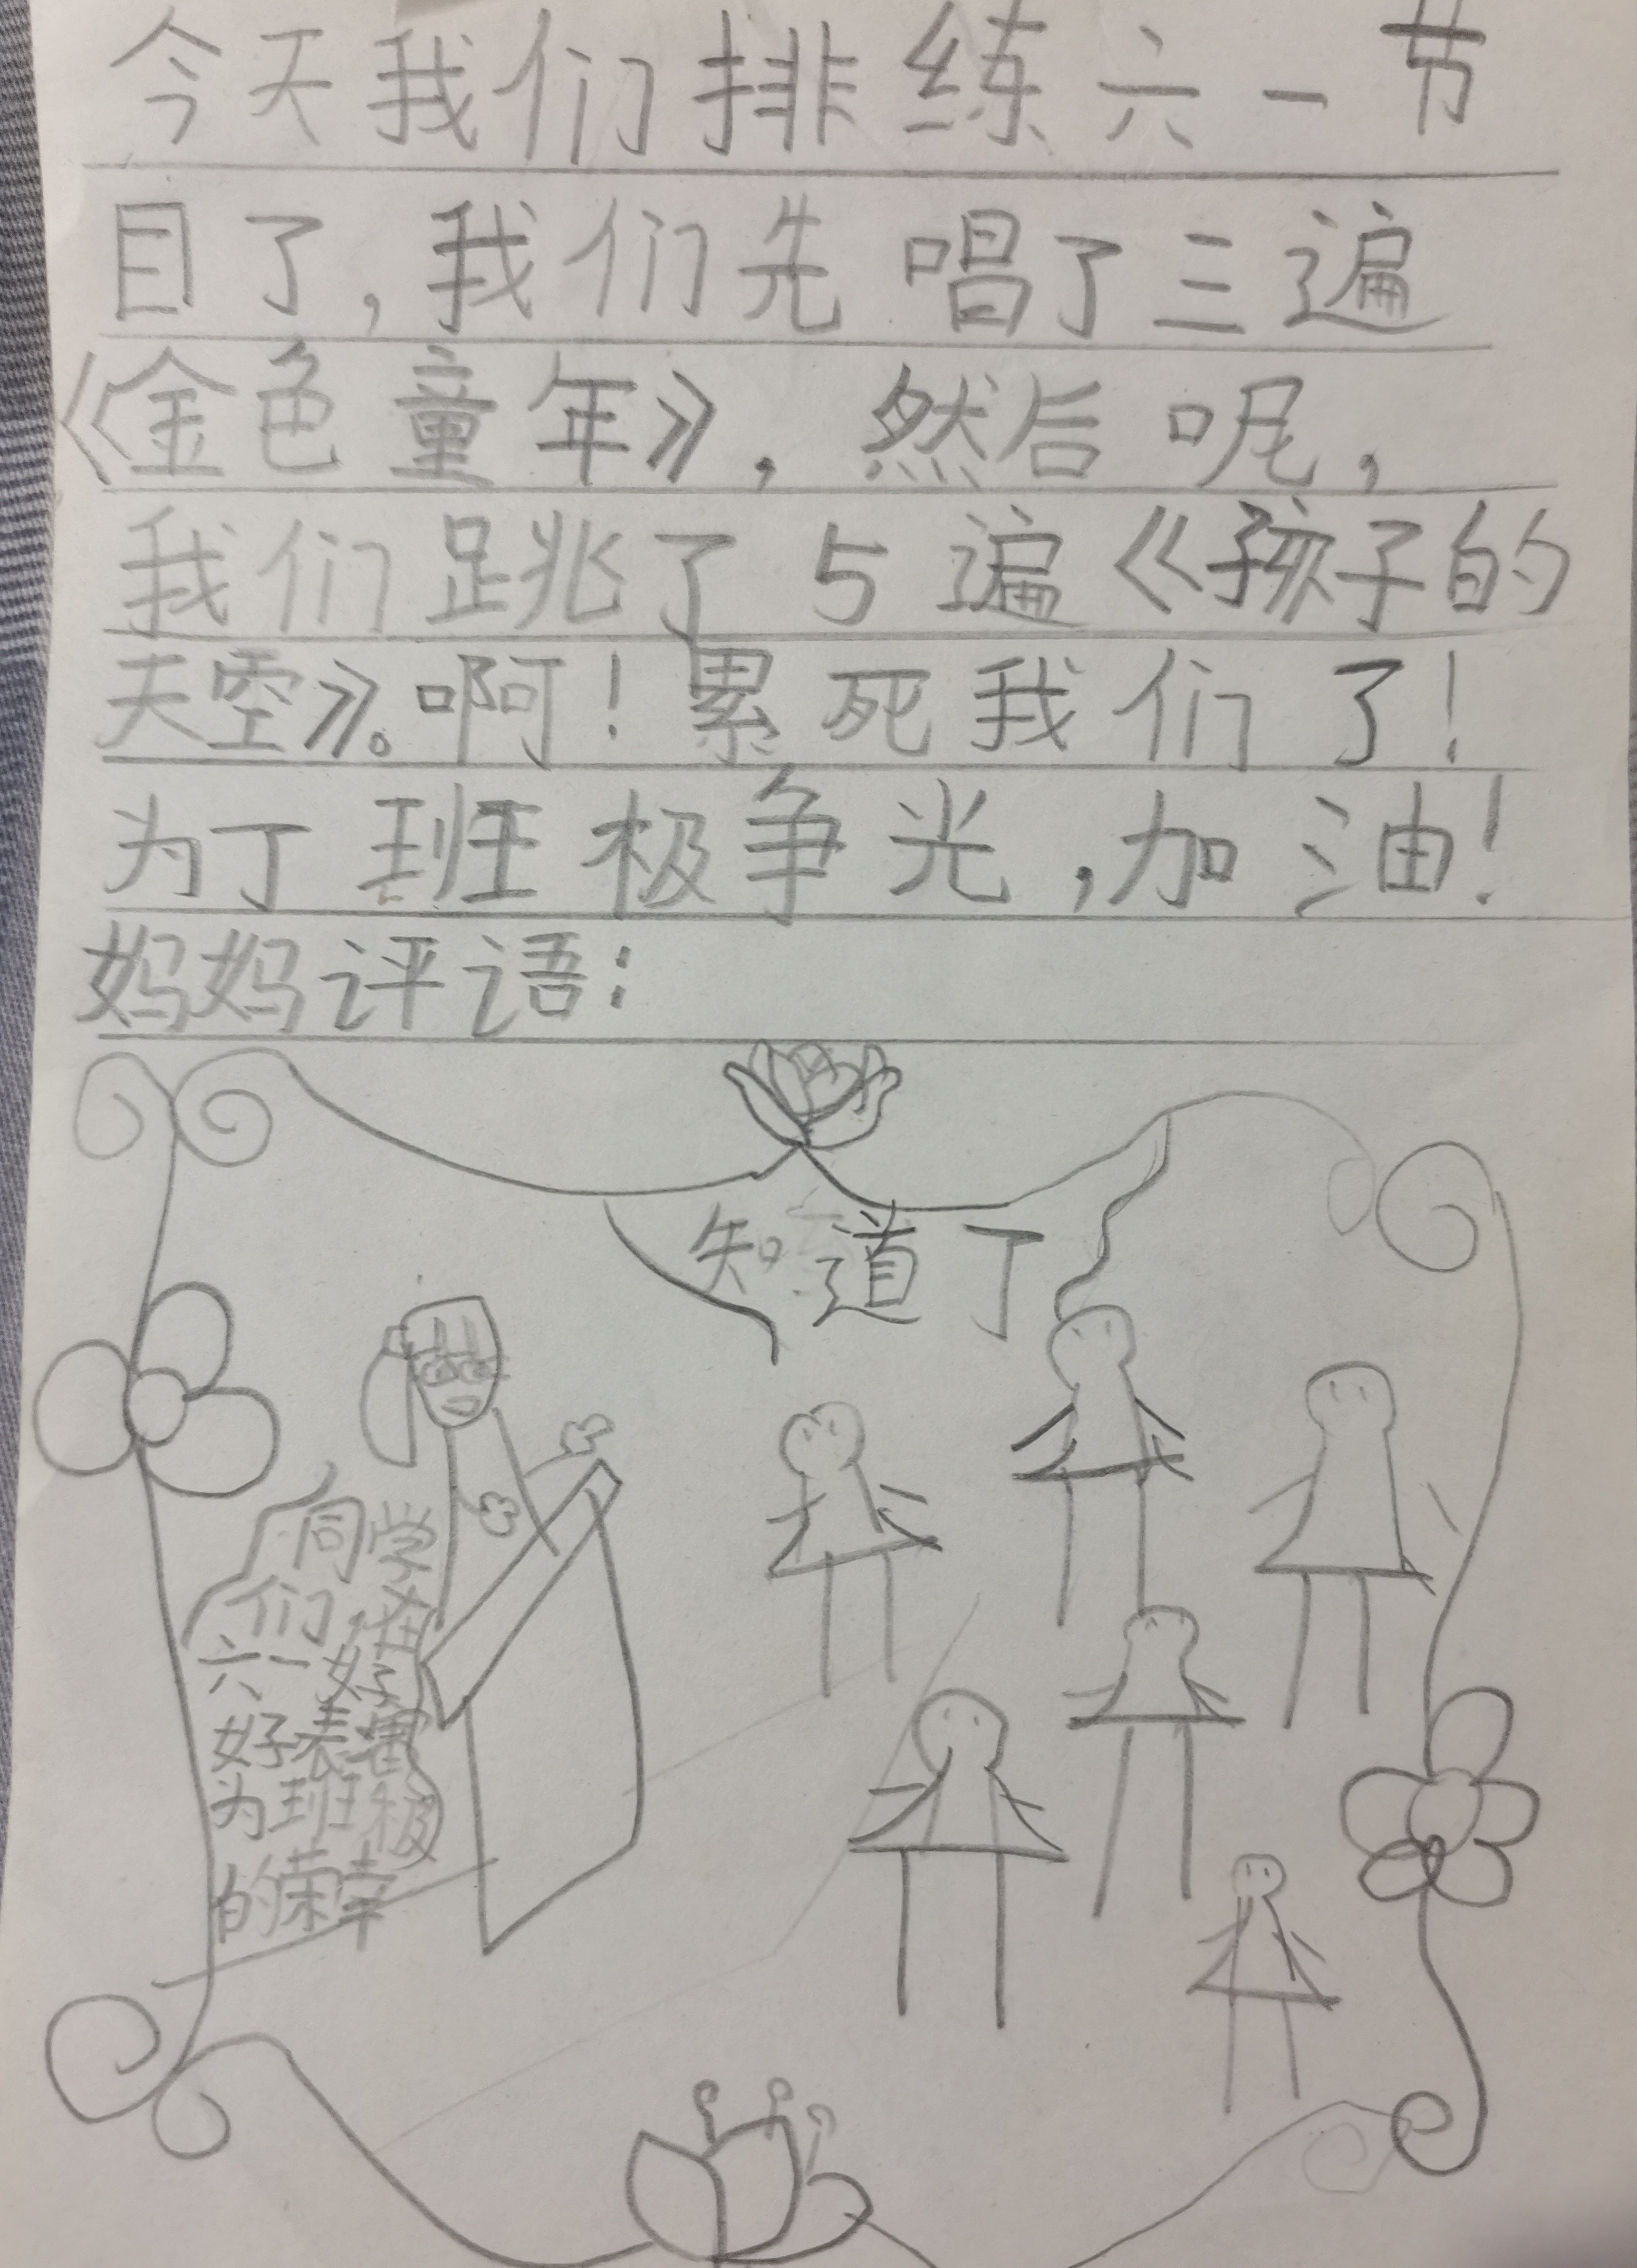 今天我们排练六一节
目了,我们先唱了三遍
《金色童年》,然后呢,
我们跳了5遍《孩子的
天空》。啊!累死我们了!
为了班极争光,加油!
妈妈评语:
知道了
同学
们,在
六一好
好表
为班极
的荣幸